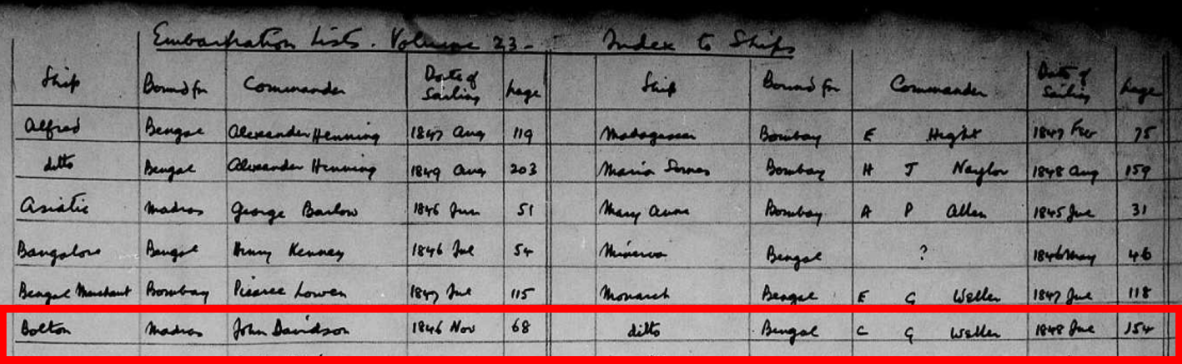 Embarkation Lists. Volume 23 - Index to Ships
Ship Bound for Commander Date of Sailing page Ship Bound for Commander Date of Sailing page
Alfred Bengal Alexander Henning 1847 Aug 119 Madagascar Bombay E Hight 1847 Feb 75
ditto Bengal Alexander Henning 1849 Aug 203 Maria Somes Bombay H J Naylor 1848 Aug 159
Asiatic Madras George Barlow 1846 Jun 51 Mary Anne Bombay A P Allen 1845 Jue 31
Bangalore Bengal Henry Kenney 1846 Jue 54 Minerva Bengal ? 1846 May 46
Bengal Merchant Bombay Pierce Lowen 1847 Jue 115 Monarch Bengal E G Weller 1847 Jue 118
Bolton Madras John Davidson 1846 Nov 68 ditto Bengal C G Weller 1848 Jue 154